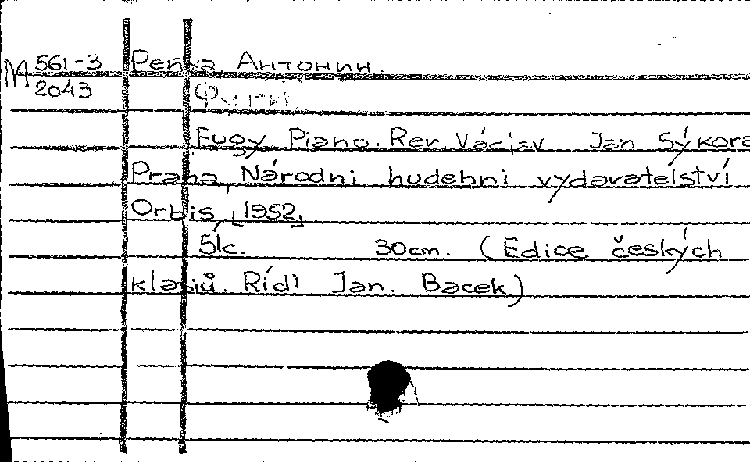 М 561-3 Рейха, Антонин.
2043 Фуги.
Fugy Piano. Rev. Václav Jan Sýkora
Praha, Národni hudebni vydavatelství
Orbis, [1952]
51c. 30cm. (Edice českých
klasiů. Rídi Jan. Bacek)